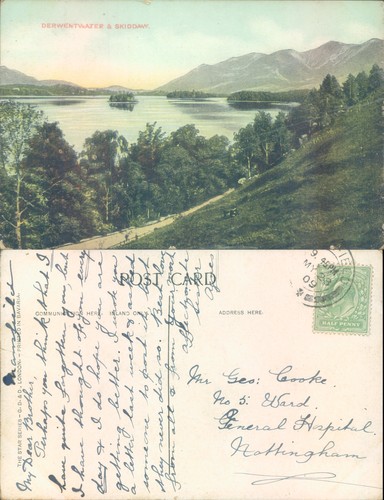 DERWENTWATER & SKIDDAW.
POST CARD
COMMUNICATIONS HERE. INLAND ONLY.
ADDRESS HERE.
THE STAR SERIES - G.D.&D., LONDON. - PRINTED IN BAVARIA.
HALF PENNY
09
My Dear Brother,
Perhaps you think that I
have quite forgotten you, but
I have thought of you every
day & I do hope you are
getting better. I wrote
a letter last week & asked
someone to post it but
they never did so. Best love
from all & from
Mr Geo: Cooke.
No 5: Ward.
General Hospital.
Nottingham